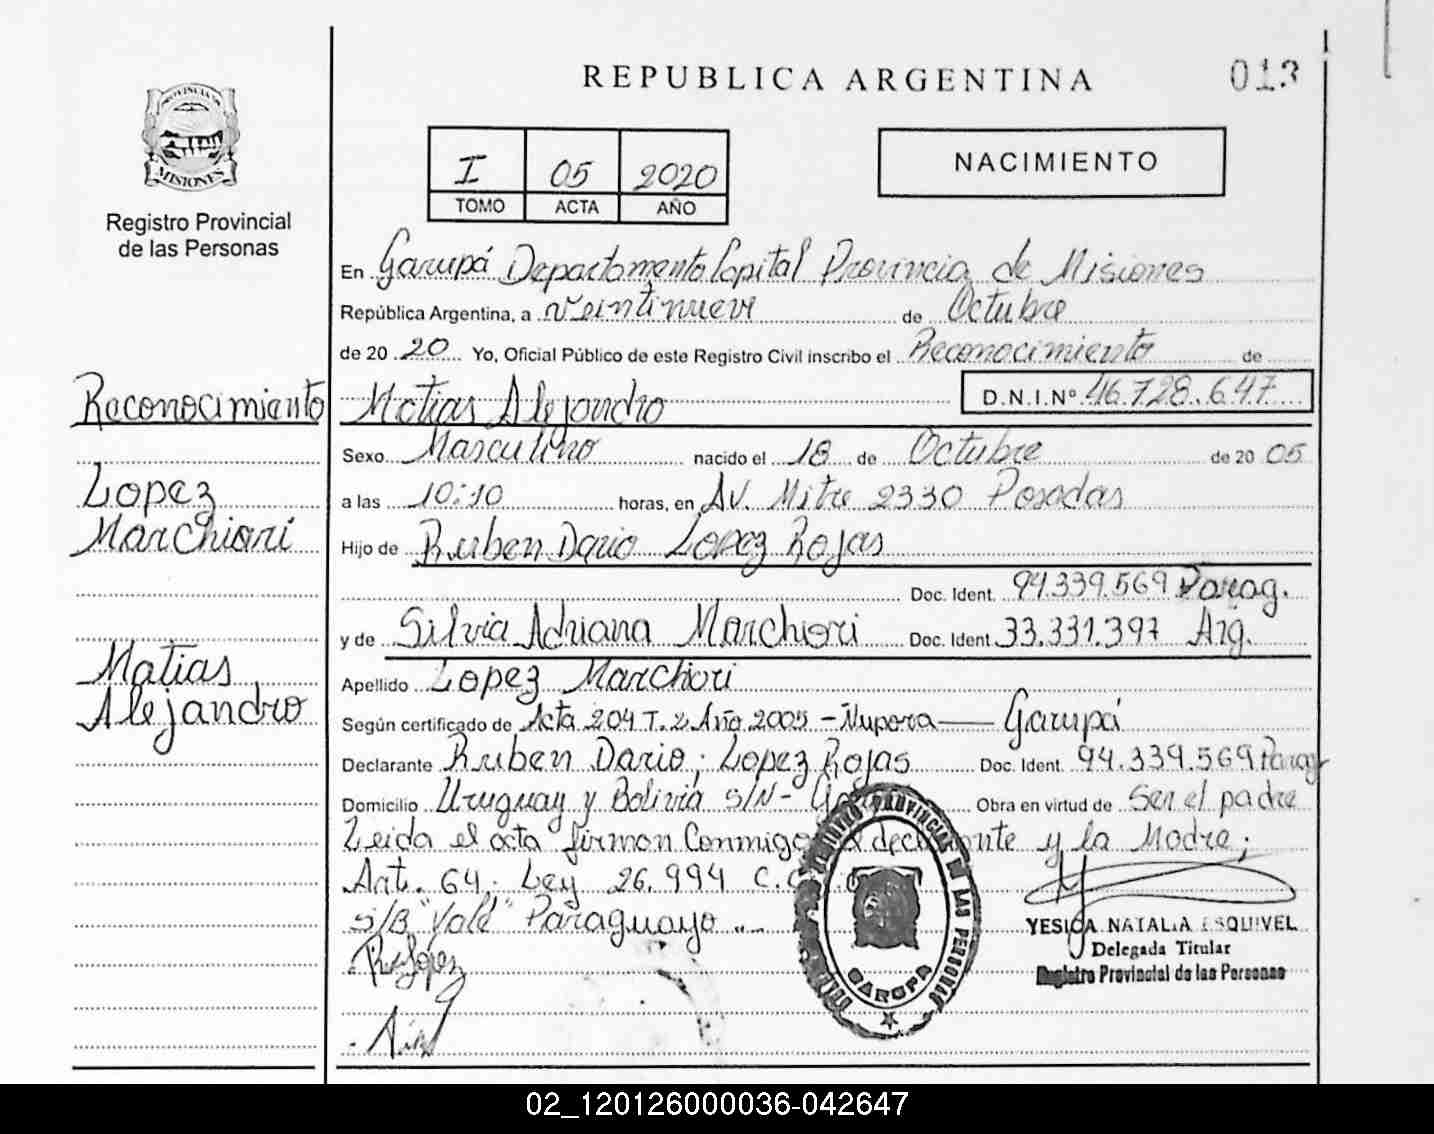 REPUBLICA ARGENTINA
013
PROVINCIA DE
MISIONES
Registro Provincial
de las Personas
I 05 2020
TOMO ACTA AÑO
NACIMIENTO
En Garupá Departamento Capital Provincia de Misiones
República Argentina, a veintinueve de Octubre
de 20 20 Yo, Oficial Público de este Registro Civil inscribo el Reconocimiento de
Reconocimiento
Matias Alejandro D.N.I.Nº 46.728.647
Sexo Masculino nacido el 18 de Octubre de 20 05
Lopez
Marchiori
a las 10:10 horas, en AV. Mitre 2330 Posadas
Hijo de Ruben Dario Lopez Rojas
Doc. Ident. 94.339.569 Parag.
y de Silvia Adriana Marchiori Doc. Ident. 33.331.397 Arg.
Matias
Alejandro
Apellido Lopez Marchiori
Según certificado de Acta 204 T. 2 Año 2005 - Garupá
Declarante Ruben Dario; Lopez Rojas Doc. Ident. 94.339.569 Parag
Domicilio Uruguay y Bolivia S/N- Obra en virtud de Ser el padre
Leida el acta firman Conmigo y la Madre;
Art. 64; Ley 26.994
S/B "Vale" Paraguayo
YESICA NATALIA ESQUIVEL
Delegada Titular
Registro Provincial de las Personas
PROVINCIAL DE LAS PERSONAS
GARUPA
02_120126000036-042647